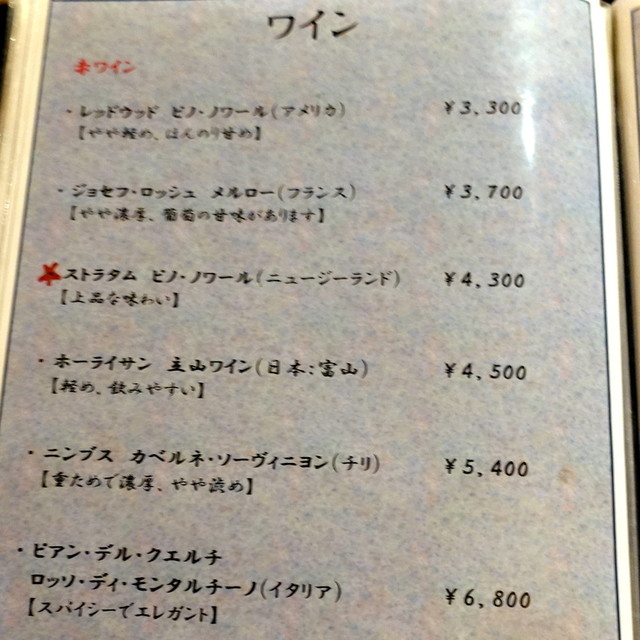 ワイン
赤ワイン
・レッドウッド ピノ・ノワール(アメリカ) ¥3,300
【やや軽め、ほんのり甘め】
・ジョセフ・ロッシュ メルロー(フランス) ¥3,700
【やや濃厚、葡萄の甘味があります】
ストラタム ピノ・ノワール(ニュージーランド) ¥4,300
【上品な味わい】
・ホーライサン 立山ワイン(日本:富山) ¥4,500
【軽め、飲みやすい】
・ニンブス カベルネ・ソーヴィニヨン(チリ) ¥5,400
【重ためで濃厚、やや渋め】
・ピアン・デル・クエルチ
ロッソ・ディ・モンタルチーノ(イタリア) ¥6,800
【スパイシーでエレガント】